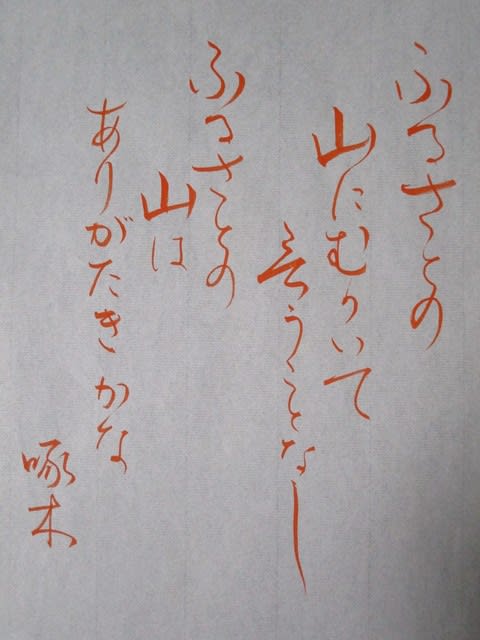 ふるさとの
山にむかいて
言うことなし
ふるさとの
山は
ありがたきかな
啄木